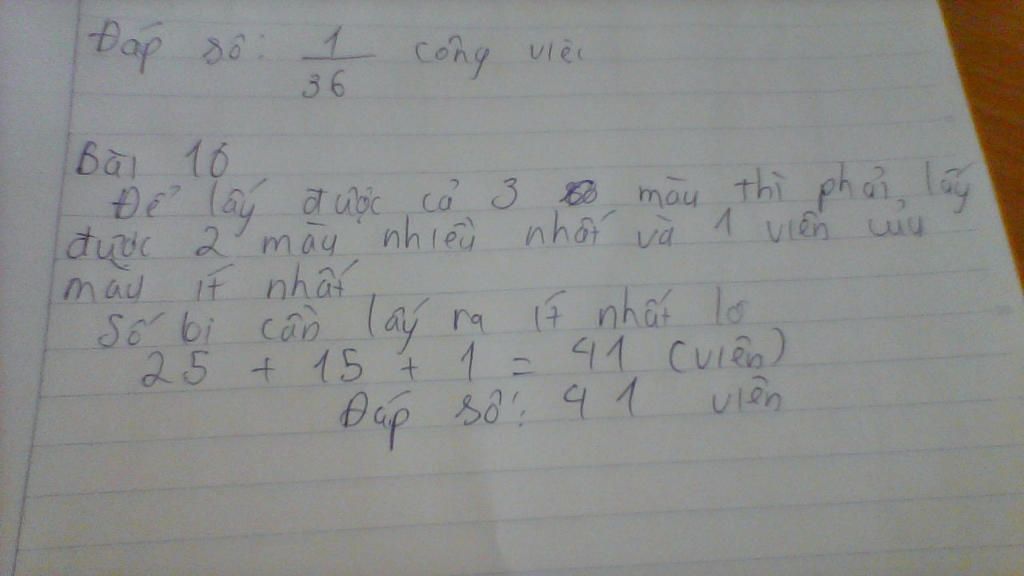 Đáp số: 1/36 công việc
Bài 10
Để lấy được cả 3 màu thì phải lấy
được 2 màu nhiều nhất và 1 viên
màu ít nhất
Số bi cần lấy ra ít nhất là
25 + 15 + 1 = 41 (viên)
Đáp số: 41 viên